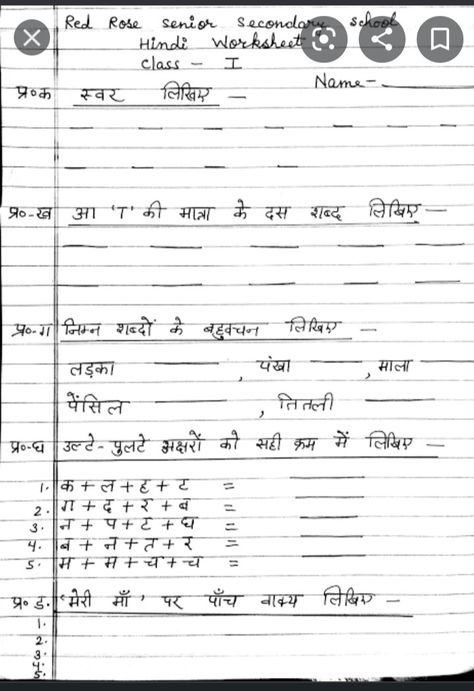 Red Rose Senior Secondary School
Hindi Worksheet
Class - I
Name -
प्र०क स्वर लिखिए -
प्र०-ख आ 'ा' की मात्रा के दस शब्द लिखिए -
प्र०-ग निम्न शब्दों के बहुवचन लिखिए -
लड़का , पंखा , माला
पेंसिल , तितली
प्र०-घ उल्टे-पुलटे अक्षरों को सही क्रम में लिखिए -
1. क + ल + ह + ट =
2. ग + द + र + ब =
3. न + प + ट + घ =
4. ब + न + त + र =
5. म + म + च + च =
प्र० ड. 'मेरी माँ' पर पाँच वाक्य लिखिए -
1.
2.
3.
4.
5.